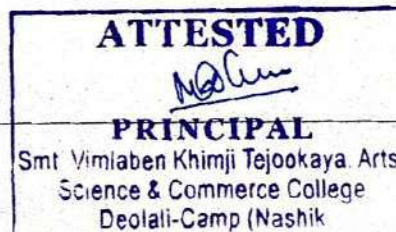 ATTESTED
PRINCIPAL
Smt Vimlaben Khimji Tejookaya Arts
Science & Commerce College
Deolali-Camp (Nashik